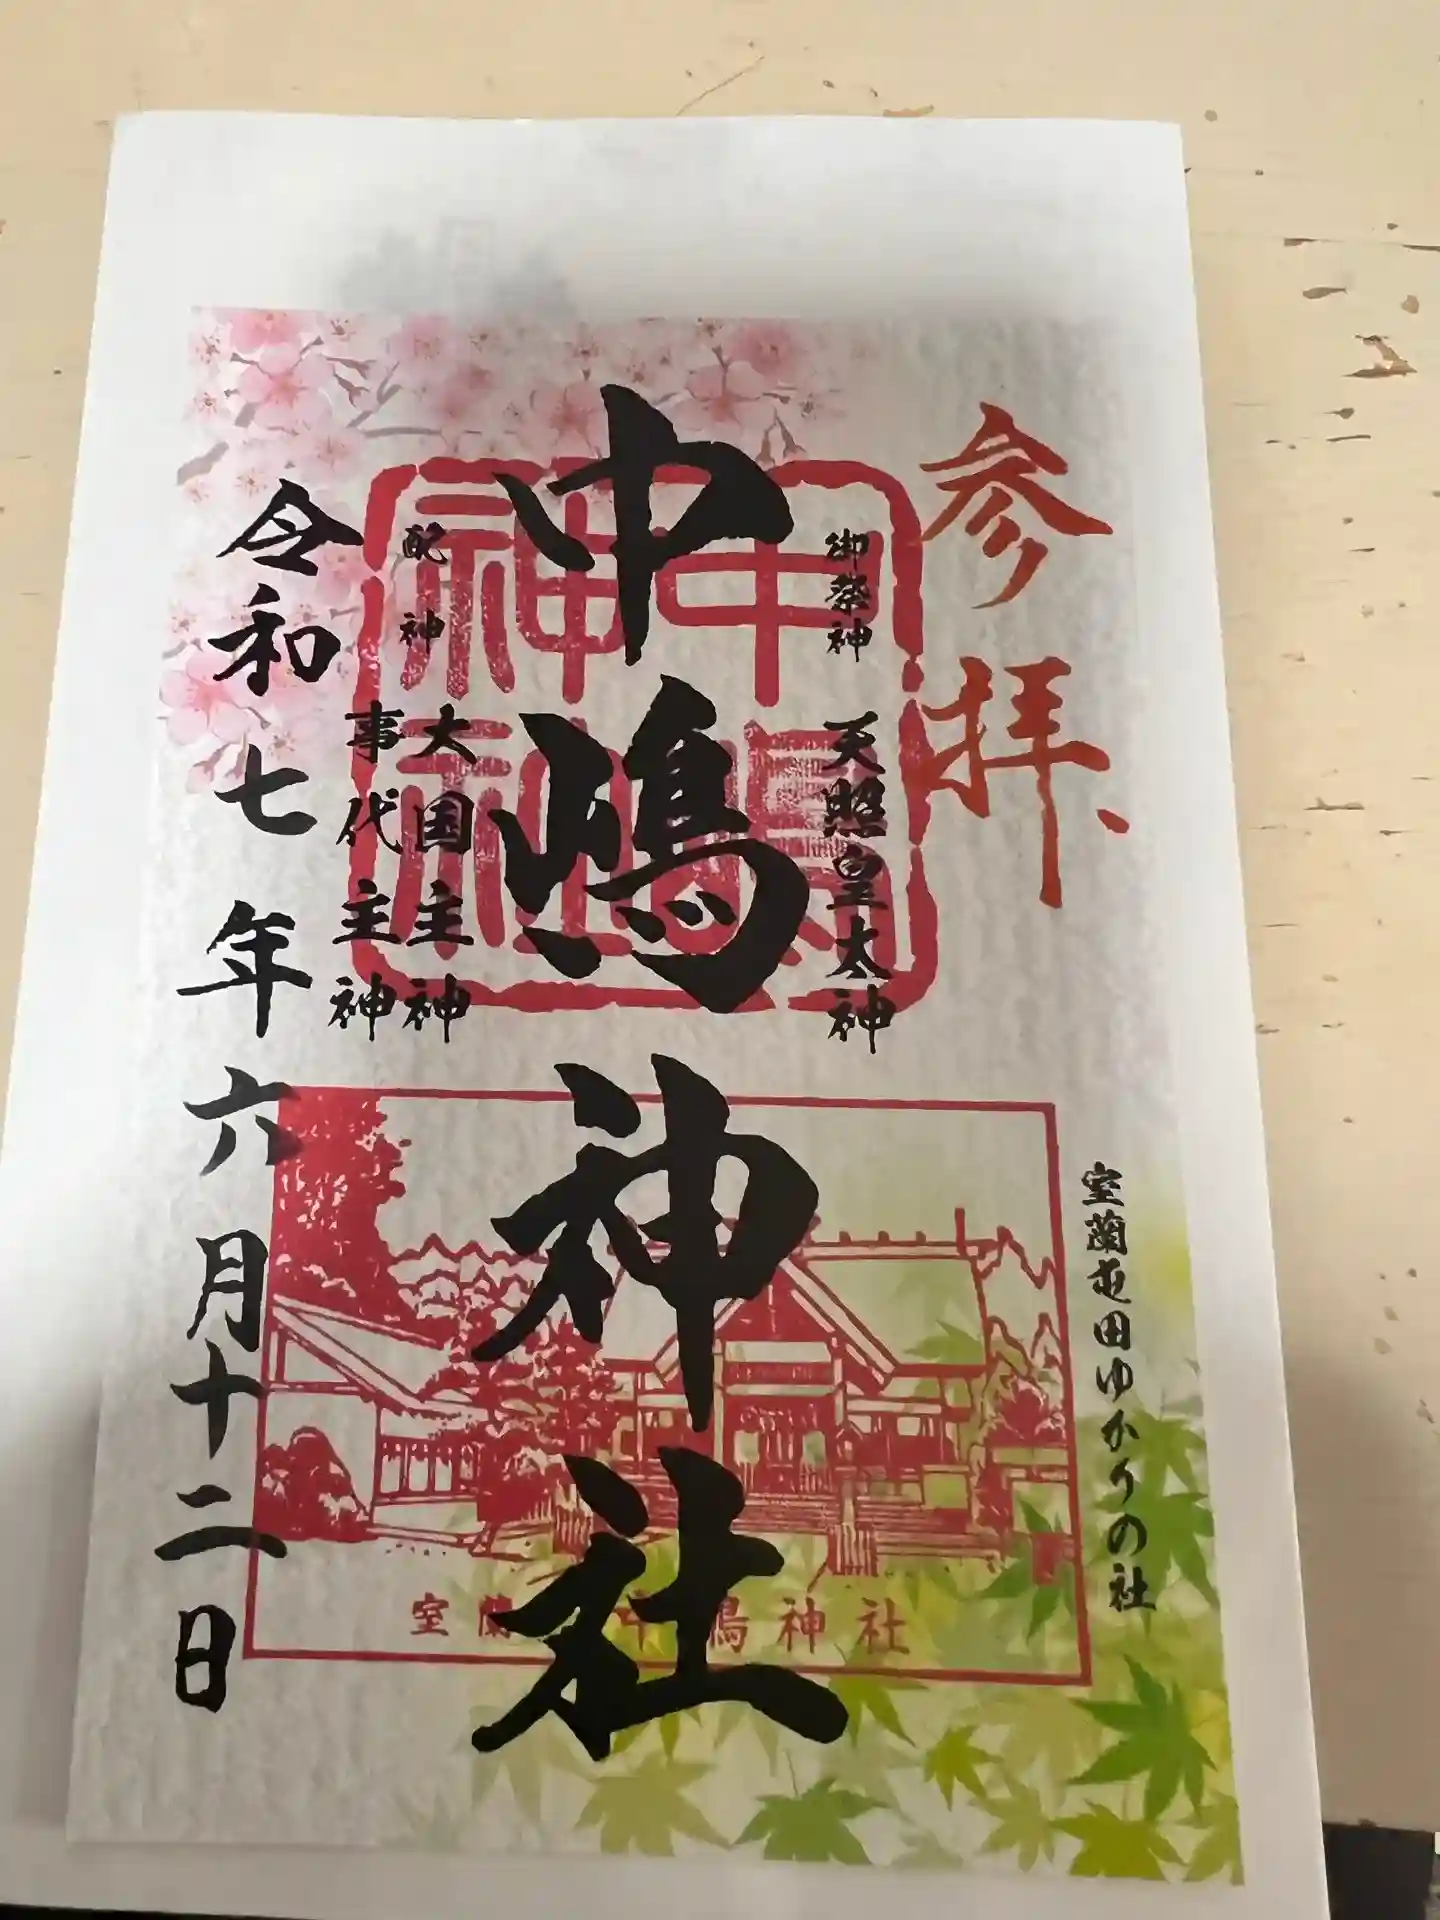 参拝
室蘭屯田ゆかりの社
御祭神
天照皇大神
中嶋神社
中嶋神社
配神
大国主神
事代主神
令和七年六月十二日
室蘭 中嶋神社